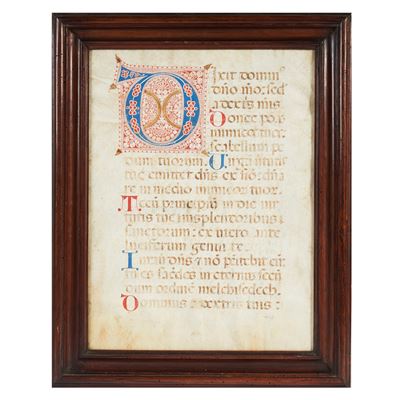 Dixit domin⁹
dño meo: sed
a dextris meis
Donec pon
inimicos tuos
scabellum pe
dum tuorum. Virgã virtutis
tue emittet dñs ex sion: dña
re in medio inimicor tuor.
Tecũ principiũ in die vir
tutis tue in splendoribus
sanctorum: ex utero ante
luciferum genui te.
Iuravit dñs & nõ penitebit eũ:
tu es in eternũ secũ
dum ordinẽ melchisedech.
Dominus a dextris tuis: